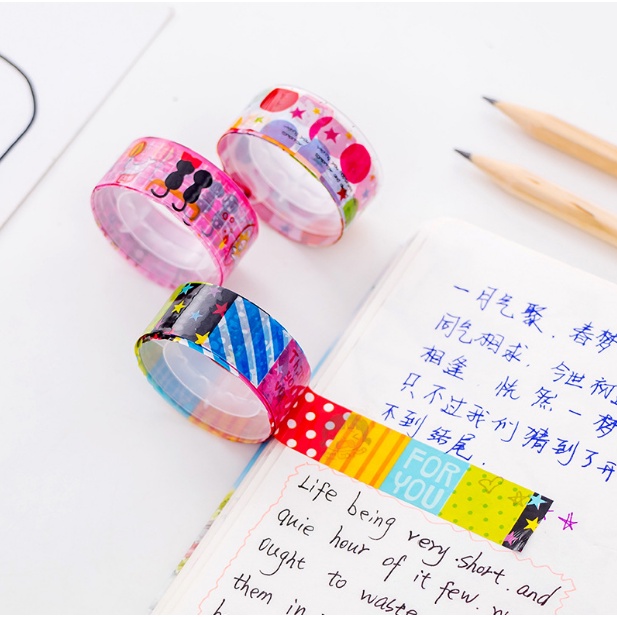 一日气聚.春梦
同气相求,今世初
相逢 恍然一梦
只不过我们猜到了开
不到结尾.
FOR
YOU
Life being very short. and
quie hour of it few.
ought to waste
them in